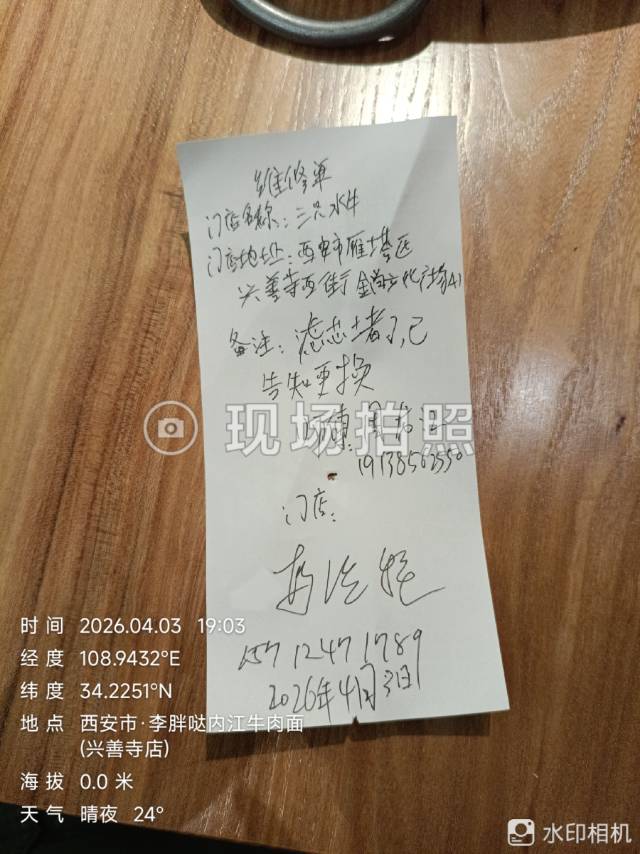 维修单
门店名称：三只水牛
门店地址：西安市雁塔区
兴善寺西街金尚文化广场A1
备注：滤芯堵了，已
告知更换
现场拍照
19138562550
门店：
157 1247 1789
2026年4月3日
时间 2026.04.03 19:03
经度 108.9432°E
纬度 34.2251°N
地点 西安市·李胖哒内江牛肉面
(兴善寺店)
海拔 0.0 米
天气 晴夜 24°
水印相机